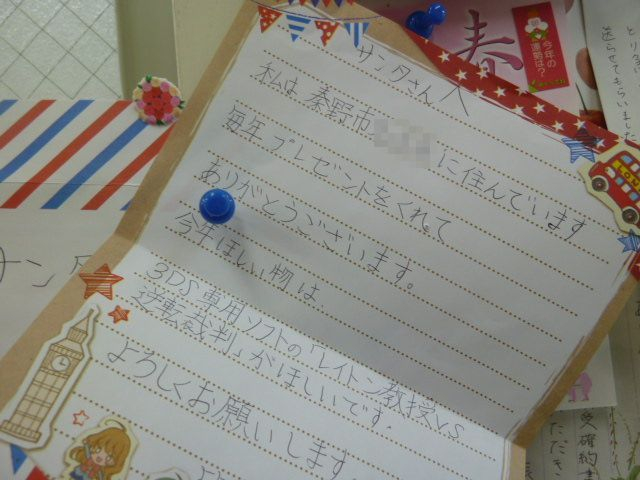 サンタさんへ
私は秦野市
に住んでいます
毎年プレゼントをくれて
ありがとうございます。
今年ほしい物は、
3DS専用ソフトの「レイトン教授VS
逆転裁判」がほしいです。
よろしくお願いします。
春
今年の
運勢は？
送らせてもらいました
受確約書
ただき